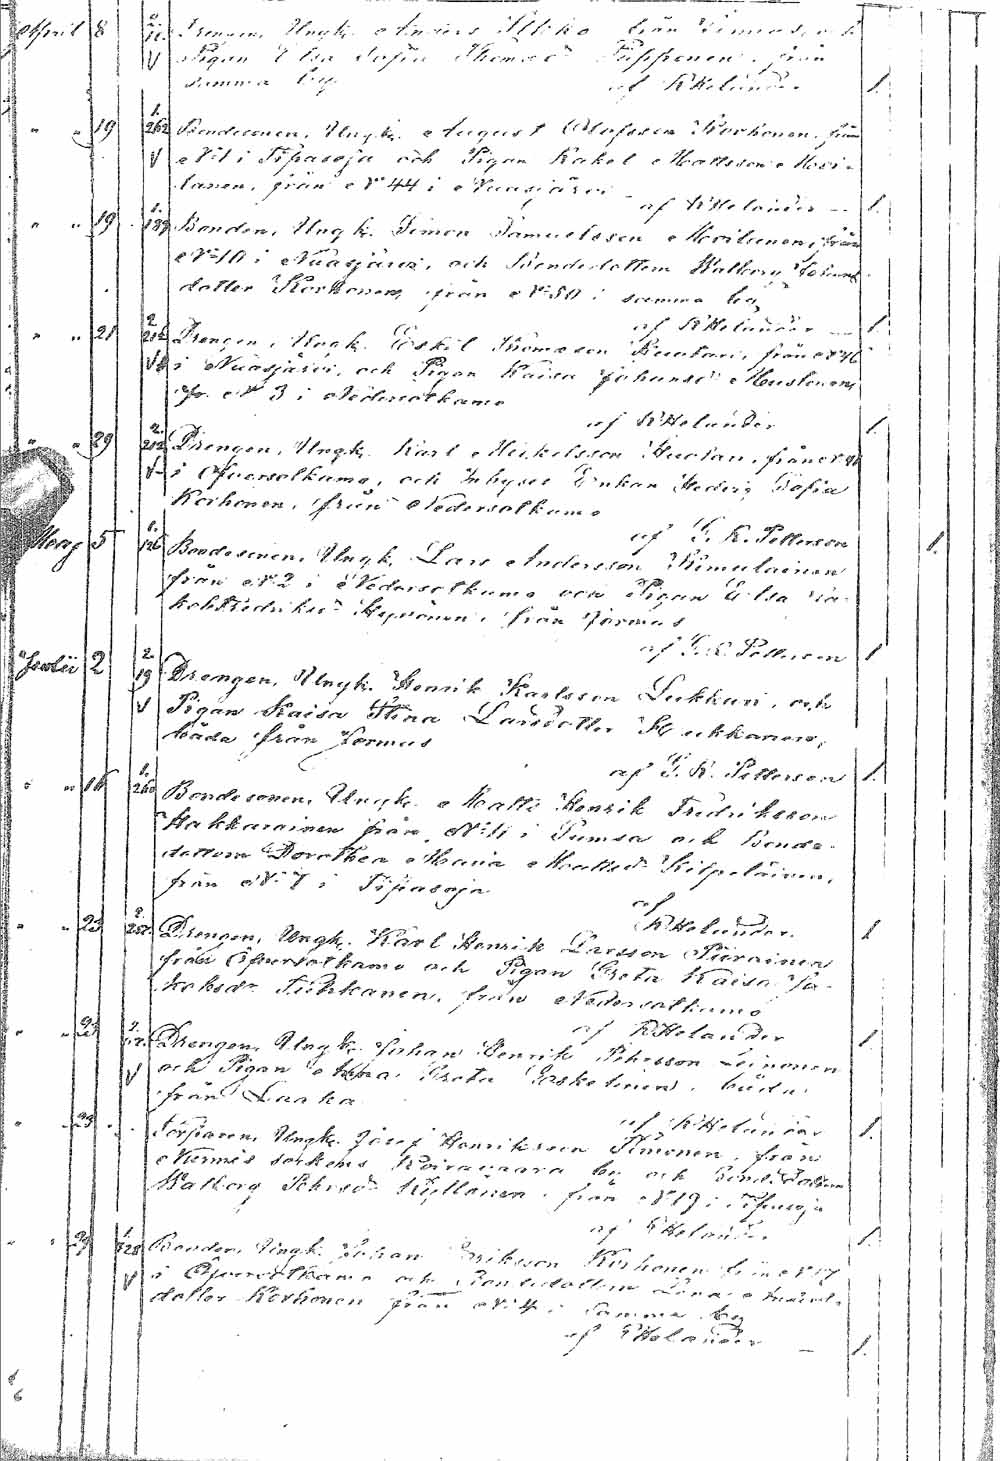 April 8 2. Drengen, Ungk. Anders från
Pigan Elsa Sofia Thomæd:r Piipponen, från
samma by af KHelander 1.
" " 19 1. 262 Bondesonen, Ungk. August Olofsson Korhonen, från
V N:1 i Tipasoja och Pigan Mattsson Moi-
lanen, från N:44 i Nuasjärvi af KHelander 1.
" " 19 1. 189 Bonden, Ungk. Simon Samuelsson Moilanen, från
N:10 i Nuasjärvi, och Bondedottern Walborg Johans
dotter Korhonen, från N:50 i samma by
af KHelander 1.
" " 21 2. Drengen, Ungk. Eskil Thomsson från N:46
i Nuasjärvi, och Pigan Kaisa Johansd:r Mustonen,
fr. N 3 i Nedersotkamo
af KHelander 1.
" " 29 2. 212 Drengen, Ungk. Karl Mickelsson från N:
i Öfversotkamo, och Inhyses Enkan Hedvig Sofia
Korhonen, från Nedersotkamo
af G. K. Petterson 1.
Maj 5 1. 126 Bondesonen, Ungk. Lars Andersson Kimulainen
från N:2 i Nedersotkamo och Pigan Elsa Ja-
kob Fredriksd:r Heponen, från Jormus
af G. K. Petterson 1
Juli 2 2. 19 Drengen, Ungk. Henrik Karlsson Lukkari, och
V Pigan Kaisa Stina Larsdotter Hukkanen,
båda från Jormus
af G. K. Petterson 1.
" " 16 1. 260 Bondesonen, Ungk. Matts Henrik Fredriksson
Hakkarainen från N:11 i Sumsa och Bonde-
dottern Dorothea Maria Mattsd:r Kilpeläinen,
från N:7 i Tipasoja
af KHelander. 1
" " 23 2. Drengen, Ungk. Karl Henrik Larsson Piirainen
från Öfversotkamo och Pigan Greta Kaisa Ja-
kobsd:r Tuhkanen, från Nedersotkamo
af KHelander 1.
" " 23 2. Drengen, Ungk. Johan Henrik Pehrsson Leinonen
V och Pigan Anna Greta Keskolinen, båda
från Laaka
af KHelander 1.
" " 23 Torparen, Ungk. Josef Henriksson Timonen, från
Nurmis sockens Koiravaara by och Bondedottern
Walborg Pehrsd:r Kyllönen, från N:19 i Tipasoja
af KHelander 1.
" " 29 1. 128 Bonden, Ungk. Johan Eriksson Korhonen från N:17
V i Öfversotkamo och Bondedottern Lena
dotter Korhonen från N:4 i samma by
af KHelander 1.